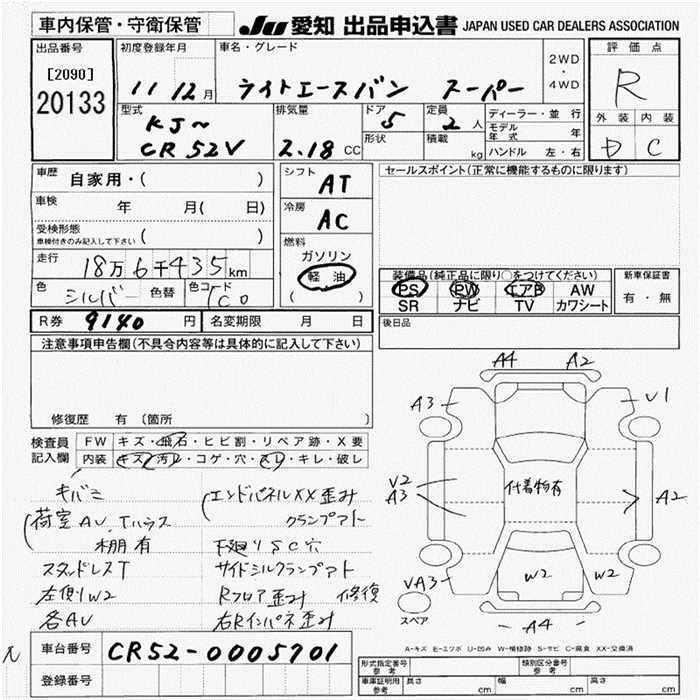 車内保管・守衛保管
JU 愛知 出品申込書 JAPAN USED CAR DEALERS ASSOCIATION
出品番号
[2090]
20133
初度登録年月
11 12月
車名・グレード
ライトエースバン スーパー
2WD
・
4WD
評価点
R
外装 内装
D C
型式
KJ~
CR52V
排気量
2.18 CC
ドア
5
形状
定員
2人
積載
kg
ディーラー・並行
モデル年式 年
ハンドル 左・右
車歴 自家用・( )
車検 年 月( 日)
受検形態
車検付きのみ記入して下さい ( )
走行 18万6千435km
色 シルバー 色替 色コード 1C0
シフト
AT
冷房
AC
燃料
ガソリン
軽油
( )
セールスポイント(正常に機能するものに限ります)
装備品(純正品に限り○をつけてください)
PS PW エアB AW
SR ナビ TV カワシート
新車保証書
有・無
R券 9140 円 名変期限 月 日
後日品
注意事項申告欄(不具合内容等は具体的に記入して下さい)
修復歴 有 (箇所 )
検査員
記入欄
FW キズ・飛石・ヒビ割・リペア跡・X要
内装 キズ・汚レ・コゲ・穴・スレ・キレ・破レ
キバミ
荷室AU、Tハウス
棚有
スタッドレスT
左側W2
各AU
エンドパネルXX歪み
クランプアト
下廻りSC穴
サイドシルクランプアト
Rフロア歪み 修復
右Rインパネ歪み
A4 A2
A3 U1
V2
A3
付着物有
A2
VA3
W2 W2
スペア
A4
A-キズ E-エクボ U-凹み W-補修跡 S-サビ C-腐食 XX-交換済
車台番号 CR52-0005701
登録番号
形式指定番号
参考
類別区分番号
参考
車庫証明用
参考
長さ cm 幅 cm 高さ cm